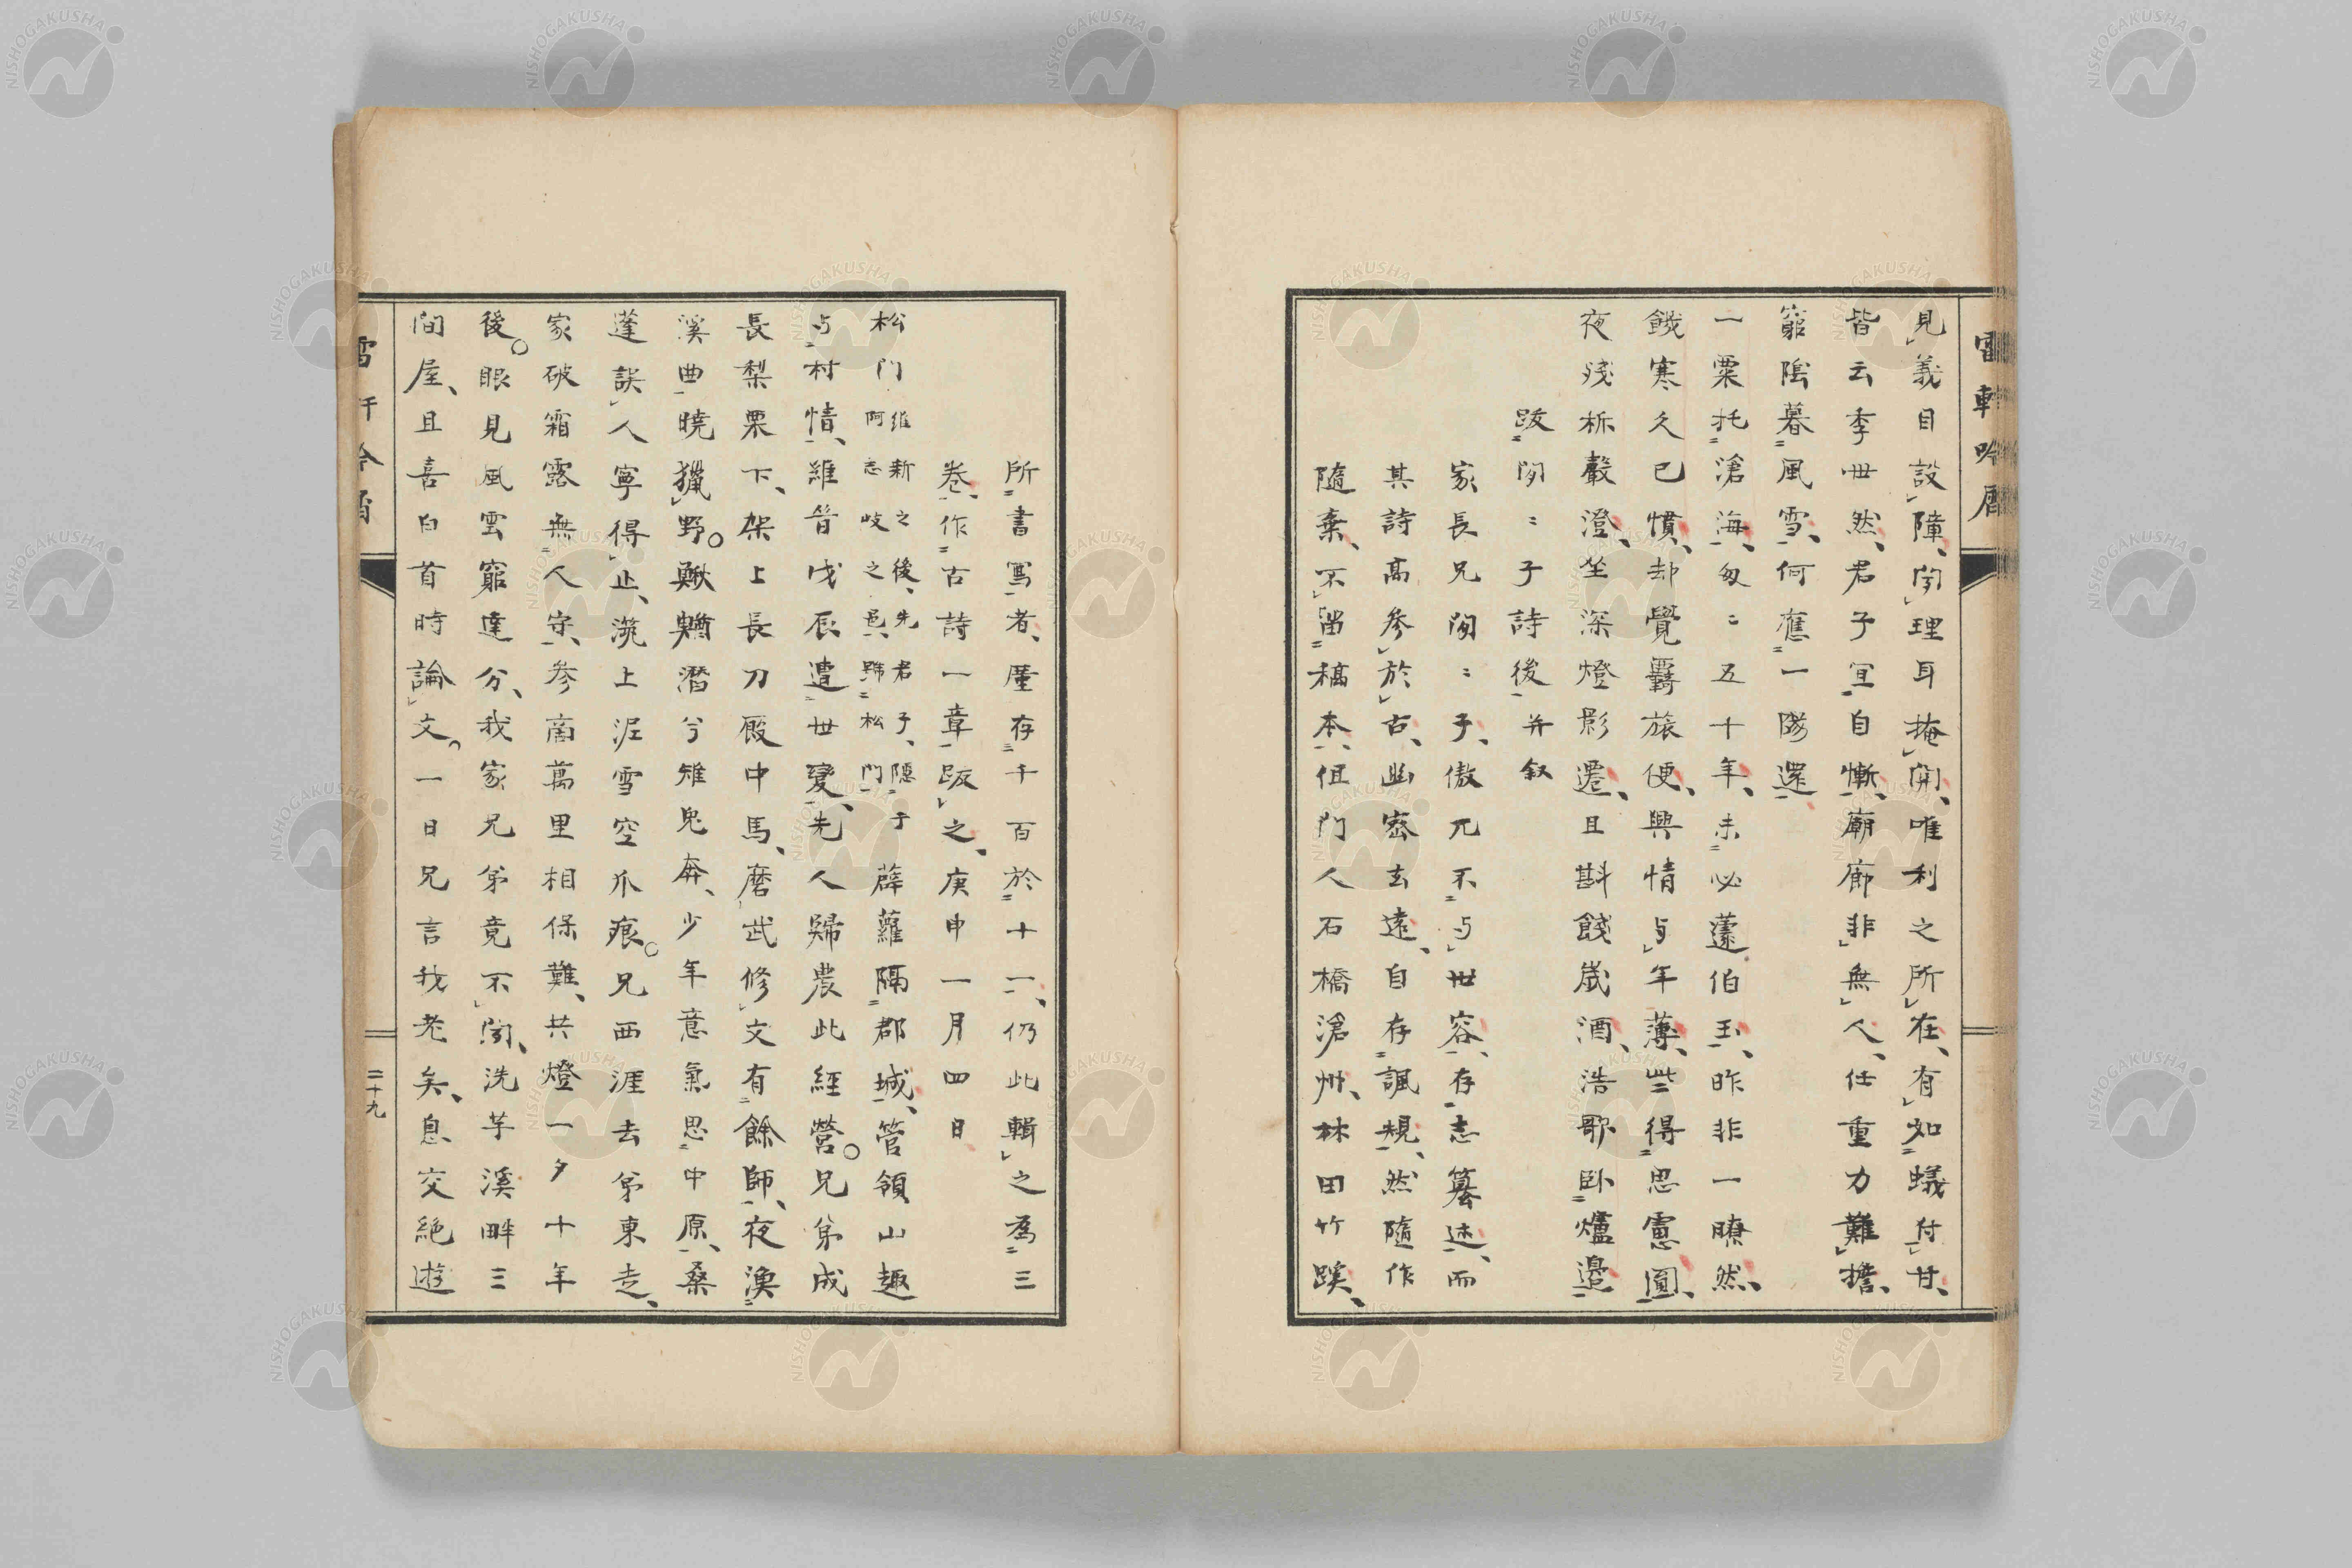 見義目設障、閉理耳掩開、唯利之所在、有如蟻付甘、
皆云季世然、君子宜自慚、廟廊非無人、任重力難擔、
窮陰暮風雪、何應一隊還、
一粟托滄海、匆〻五十年、未必蘧伯玉、昨非一瞭然、
饑寒久已慣、却覺羇旅便、興情与年薄、些得思慮圓、
夜残柝聲澄、坐深燈影遷、且斟餞歳酒、浩歌臥爐邊、
跋閑〻子詩後并叙
家長兄閑〻子、傲兀不与世容、存志纂述、而
其詩高参於古、幽窓玄遠、自存諷規、然隨作
隨棄、不留稿本、但門人石橋滄州、林田竹蹊、
所書写者、厪存千百於十一、仍此輯之為三
卷、作古詩一章跋之、庚申一月四日
松門維新之後、先君子、隠于阿志岐之邑、号松門薜蘿隔郡城、管領山趣
与村情、維昔戊辰遭世変、先人歸農此經營。兄弟成
長梨栗下、架上長刀厩中馬、磨武修文有餘師、夜漁
溪曲曉獵野。鰍鰌潛兮雉兎奔、少年意氣思中原、桑
蓬誤人寧得止、滊上泥雪空爪痕。兄西涯去弟東走、
家破霜露無人守、参商萬里相保難、共燈一夕十年
後。眼見風雲窮達分、我家兄弟竟不聞、洗芋溪畔三
間屋、且喜白首時論文。一日兄言我老矣、息交絶遊
雷軒吟屑
二十九